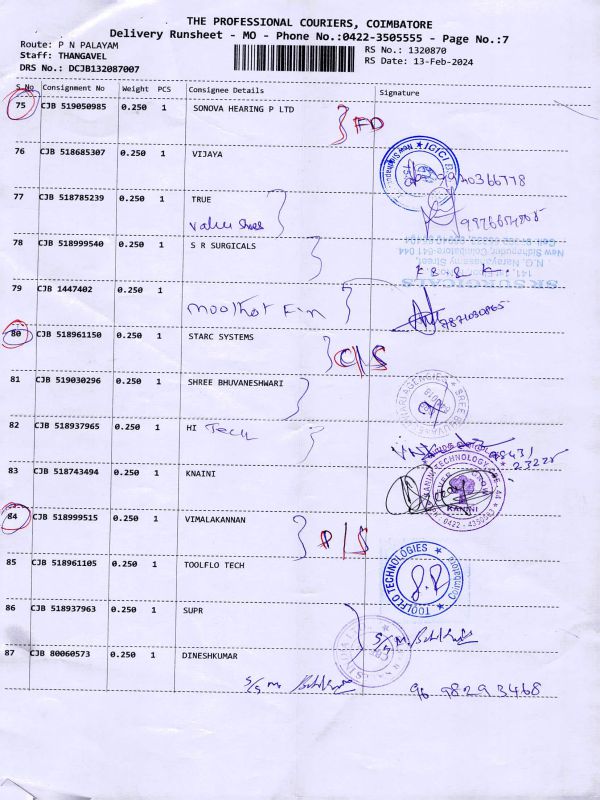 THE PROFESSIONAL COURIERS, COIMBATORE
Delivery Runsheet - MO - Phone No.:0422-3505555 - Page No.:7
Route: P N PALAYAM
RS No.: 1320870
Staff: THANGAVEL
RS Date: 13-Feb-2024
DRS No.: DCJB132087007
S No Consignment No Weight PCS Consignee Details Signature
75 CJB 519050985 0.250 1 SONOVA HEARING P LTD FD
76 CJB 518685307 0.250 1 VIJAYA
77 CJB 518785239 0.250 1 TRUE
Value Shoes
78 CJB 518999540 0.250 1 S R SURGICALS
79 CJB 1447402 0.250 1
Moolhot Fin
80 CJB 518961150 0.250 1 STARC SYSTEMS C/S
81 CJB 519030296 0.250 1 SHREE BHUVANESHWARI
82 CJB 518937965 0.250 1 HI Tech
83 CJB 518743494 0.250 1 KNAINI
KANINI
84 CJB 518999515 0.250 1 VIMALAKANNAN P/S
85 CJB 518961105 0.250 1 TOOLFLO TECH
TOOLFLO TECHNOLOGIES
Coimbatore
86 CJB 518937963 0.250 1 SUPR
87 CJB 80060573 0.250 1 DINESHKUMAR